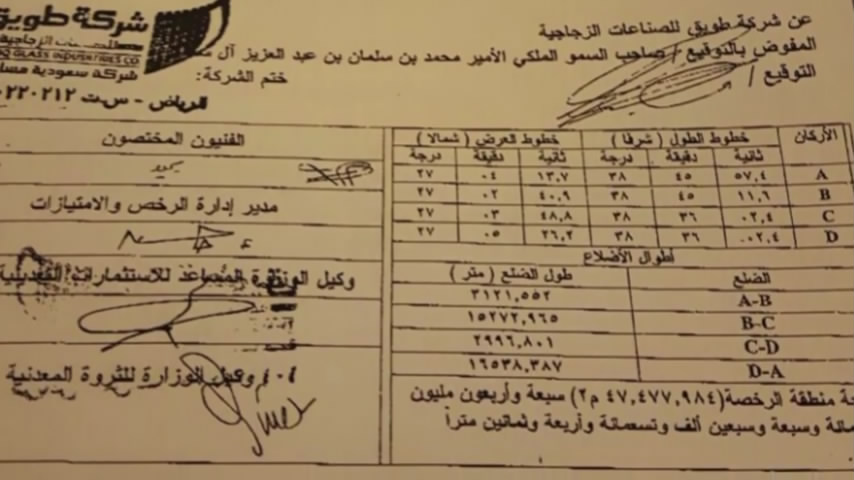 عن شركة طويق للصناعات الزجاجية
المفوض بالتوقيع / صاحب السمو الملكي الأمير محمد بن سلمان بن عبد العزيز آل
التوقيع /
ختم الشركة:
شركة طويق
GLASS INDUSTRIES CO
شركة سعودية
الرياض - س.ت
الأركان خطوط الطول ( شرقا ) خطوط العرض ( شمالا )
ثانية دقيقة درجة ثانية دقيقة درجة
A ٥٧,٤ ٤٥ ٣٨ ١٣,٧ ٠٤ ٢٧
B ١١,٦ ٤٥ ٣٨ ٤٠,٩ ٠٢ ٢٧
C ٠٢,٤ ٣٦ ٣٨ ٤٨,٨ ٠٣ ٢٧
D ٠٠٢,٤ ٣٦ ٣٨ ٢٦,٢ ٠٥ ٢٧
أطوال الأضلاع
الضلع طول الضلع ( متر )
A-B ٣١٢١,٥٥٢
B-C ١٥٢٧٢,٩٦٥
C-D ٢٩٩٦,٨٠١
D-A ١٦٥٣٨,٣٨٧
منطقة الرخصة(٤٧,٤٧٧,٩٨٤ م٢) سبعة وأربعون مليون
وسبعة وسبعين ألف وتسعمائة وأربعة وثمانين متراً
الفنيون المختصون
مدير إدارة الرخص والامتيازات
وكيل الوزارة المساعد للاستثمارات التعدينية
وكيل الوزارة للثروة المعدنية